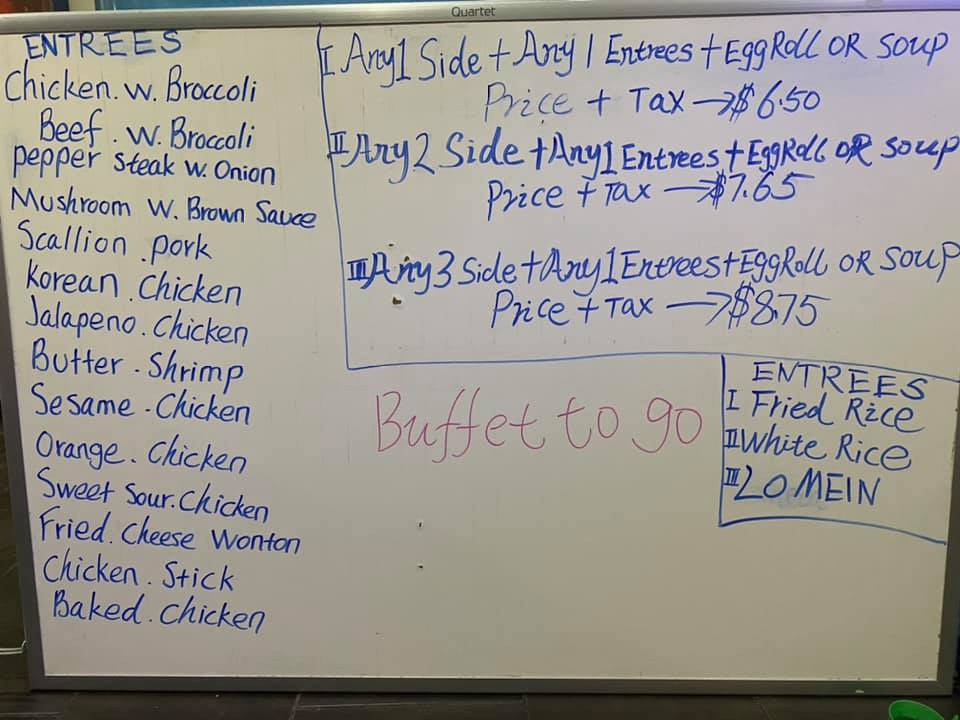 Quartet
ENTREES
Chicken. w. Broccoli
Beef. w. Broccoli
pepper steak w. Onion
Mushroom w. Brown Sauce
Scallion .pork
Korean .Chicken
Jalapeno. Chicken
Butter. Shrimp
Sesame. Chicken
Orange. Chicken
Sweet Sour. Chicken
Fried. Cheese Wonton
Chicken. Stick
Baked. Chicken
I Any 1 Side + Any 1 Entrees + Egg Roll OR Soup
Price + Tax → $6.50
II Any 2 Side + Any 1 Entrees + Egg Roll OR soup
Price + Tax → $7.65
III Any 3 Side + Any 1 Entrees + Egg Roll OR SOUP
Price + Tax → $8.75
Buffet to go
ENTREES
I Fried Rice
II White Rice
III LO MEIN